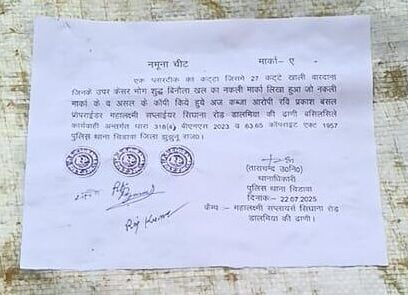 नमूना चीट मार्का- ए
एक प्लास्टीक का कट्टा जिसमे 27 कट्टे खाली वारदाना
जिनके उपर केसर भोग शुद्ध बिनौला खल का नकली मार्का लिखा हुआ जो नकली
मार्का के व असल के कॉपी किये हुये अज कब्जा आरोपी रवि प्रकाश बंसल
प्रोपराईडर महालक्ष्मी सप्लाईयर सिघाना रोड डालमिया की ढाणी बसिलसिले
कार्यवाही अन्तर्गत धारा 318(4) बीएनएस 2023 व 63,65 कॉपीराइट एक्ट 1957
पुलिस थाना चिडावा जिला झुझुनू राज0।
(ताराचन्द उ0नि0)
थानाधिकारी
पुलिस थाना चिडावा
दिनाक:- 22.07.2025
कैम्प :- महालक्ष्मी सप्लायर्स सिघाना रोड
डालमिया की ढाणी।
Raj Kumar